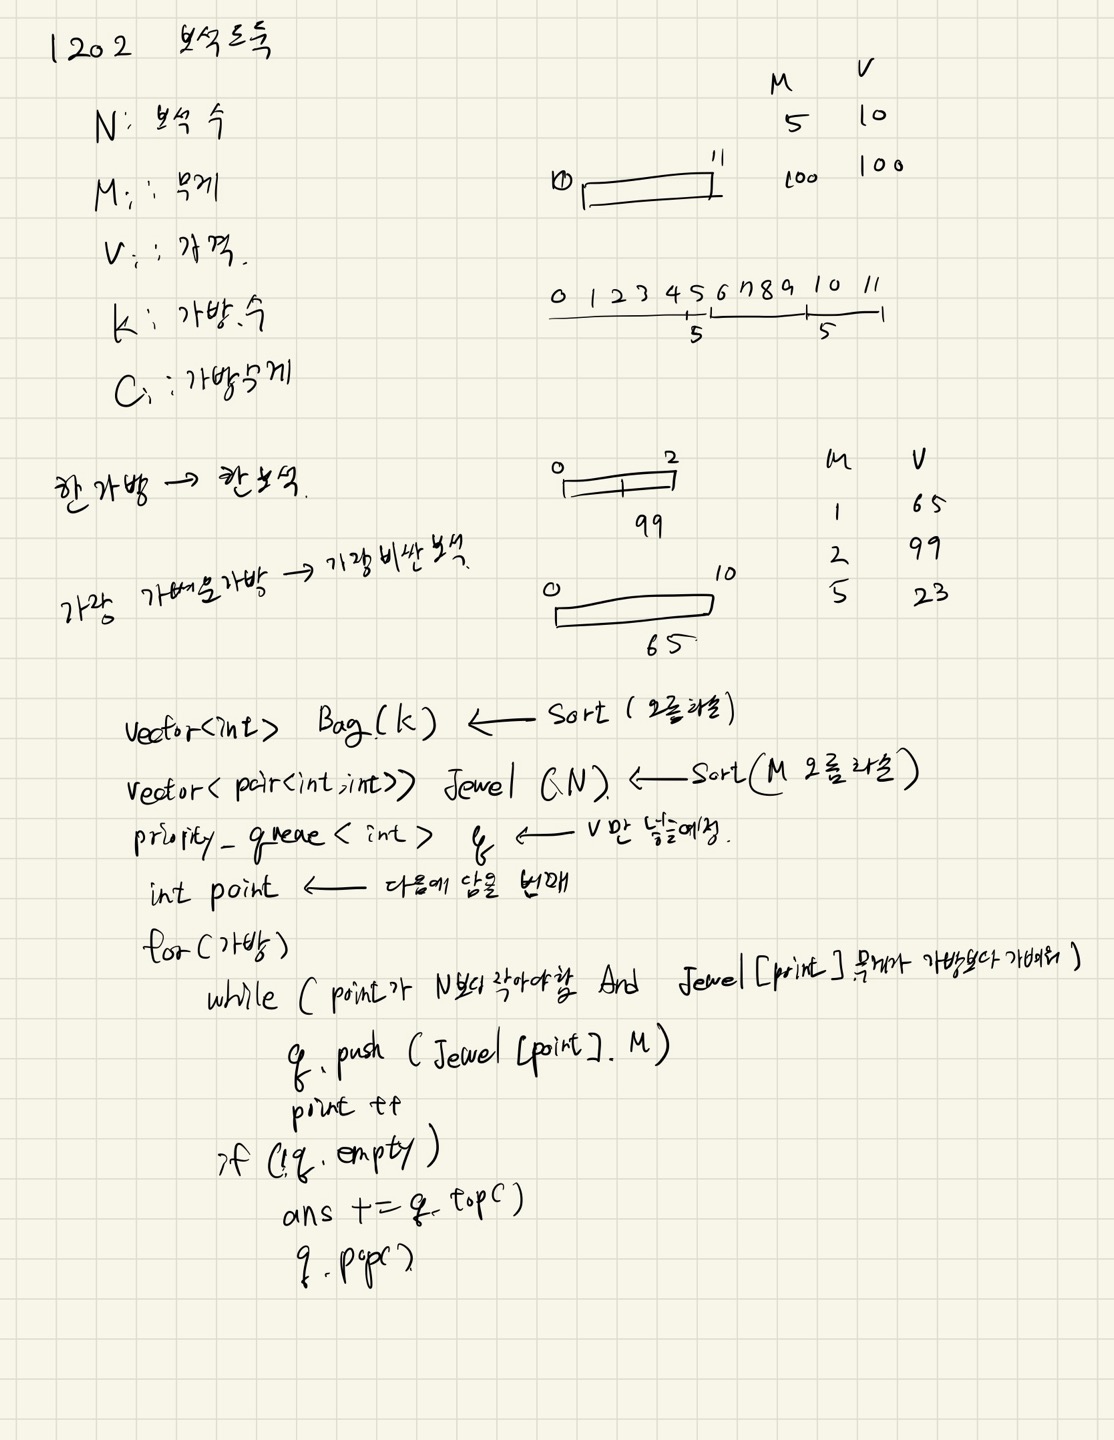 1202 보석도둑
N : 보석 수
Mi : 무게
Vi : 가격.
K : 가방.수
Ci : 가방무게
M V
5 10
100 100
0 11
0 1 2 3 4 5 6 7 8 9 10 11
5 5
한 가방 → 한 보석.
가장 가벼운가방 → 가장 비싼 보석.
0 2
99
0 10
65
M V
1 65
2 99
5 23
vector<int> Bag(K) ← Sort (오름차순)
vector< pair<int,int>> Jewel (N) ← Sort(M 오름차순)
priority_queue < int > q ← V만 넣을예정.
int point ← 다음에 담을 번째
for(가방)
while ( point가 N보다 작아야함 And Jewel [point] 무게가 가방보다 가벼워 )
q. push ( Jewel [point]. M )
point ++
if (!q. empty )
ans += q. top( )
q. pop( )